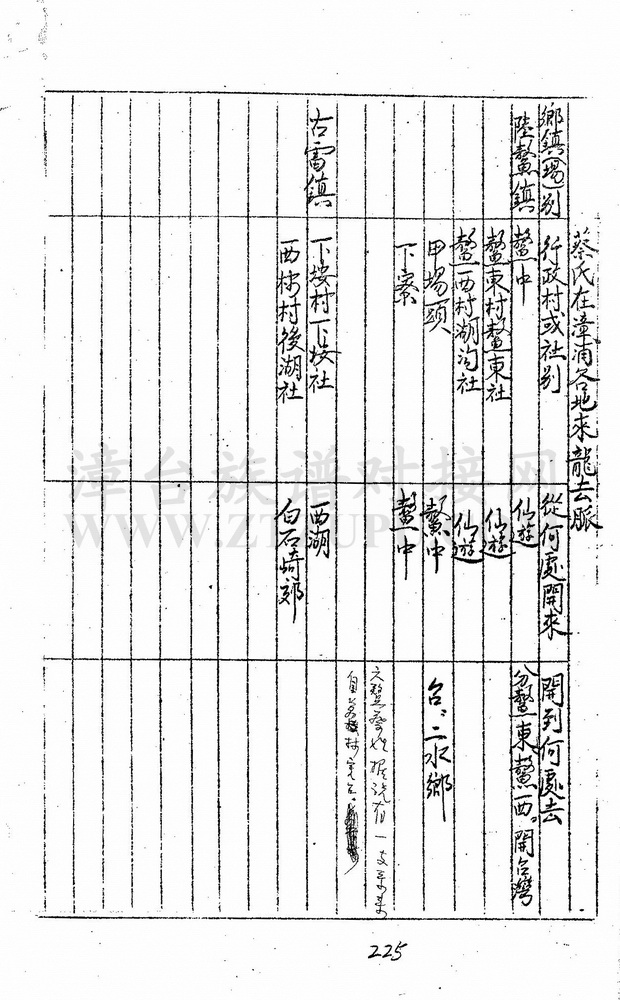 蔡氏在漳浦各地來龍去脈
鄉鎮(場)別 行政村或社別 從何處開來 開到何處去
陸鰲鎮 鰲中 仙遊 分鰲東鰲西。開台灣
鰲東村鰲東社 仙遊
鰲西村湖沟社 仙遊
甲場頭 鰲中 台:二水鄉
下寮 鰲中
六鰲蔡姓據說有一支系來
自
古雷鎮 下垵村下垵社 西湖
西林村後湖社 白石崎郊
漳台族谱对接网
225